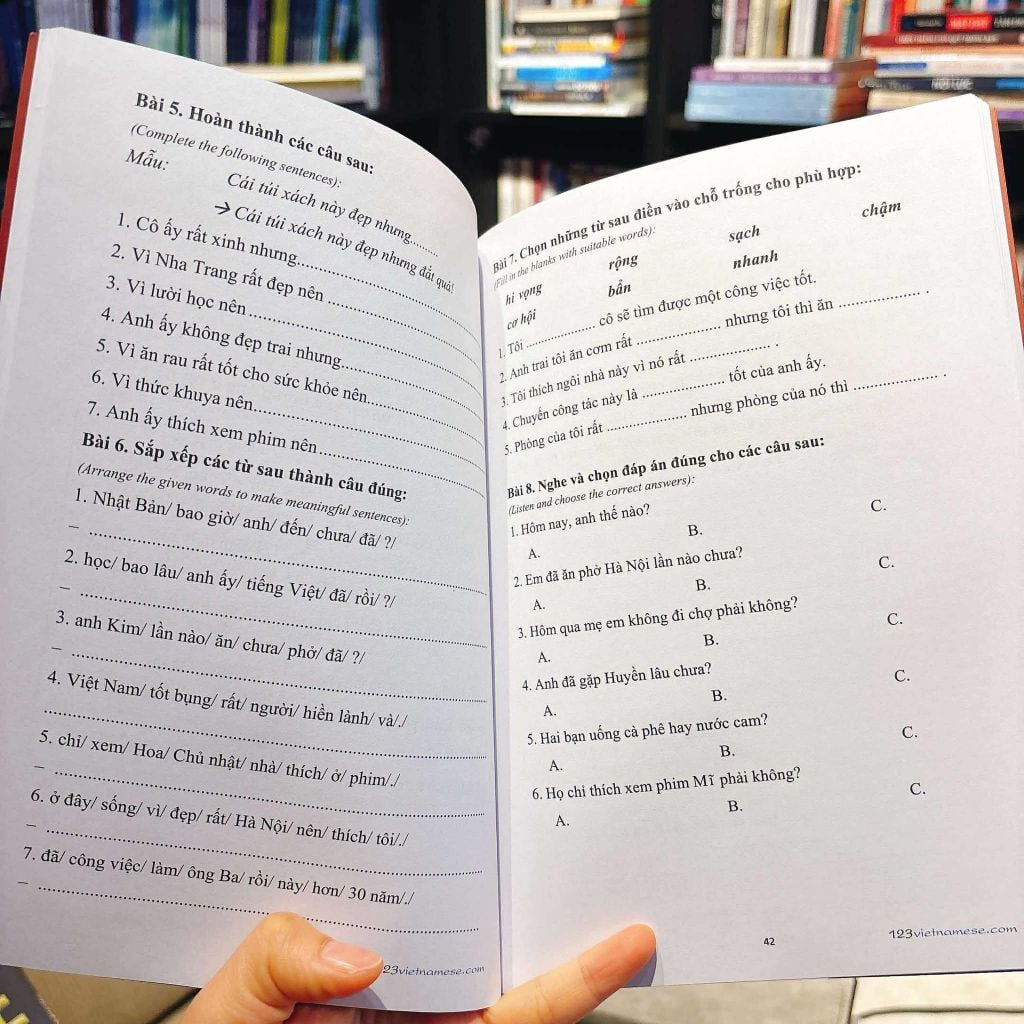 Bài 5. Hoàn thành các câu sau:
(Complete the following sentences):
Mẫu:
Cái túi xách này đẹp nhưng........
→ Cái túi xách này đẹp nhưng đắt quá!
1. Cô ấy rất xinh nhưng..............................
2. Vì Nha Trang rất đẹp nên ..............................
3. Vì lười học nên..............................
4. Anh ấy không đẹp trai nhưng..............................
5. Vì ăn rau rất tốt cho sức khỏe nên..............................
6. Vì thức khuya nên..............................
7. Anh ấy thích xem phim nên..............................
Bài 6. Sắp xếp các từ sau thành câu đúng:
(Arrange the given words to make meaningful sentences):
1. Nhật Bản/ bao giờ/ anh/ đến/ chưa/ đã/ ?/
– ..............................
2. học/ bao lâu/ anh ấy/ tiếng Việt/ đã/ rồi/ ?/
– ..............................
3. anh Kim/ lần nào/ ăn/ chưa/ phở/ đã/ ?/
– ..............................
4. Việt Nam/ tốt bụng/ rất/ người/ hiền lành/ và/./
..............................
5. chỉ/ xem/ Hoa/ Chủ nhật/ nhà/ thích/ ở/ phim/./
– ..............................
6. ở đây/ sống/ vì/ đẹp/ rất/ Hà Nội/ nên/ thích/ tôi/./
– ..............................
7. đã/ công việc/ làm/ ông Ba/ rồi/ này/ hơn/ 30 năm/./
– ..............................
23vietnamese.com
Bài 7. Chọn những từ sau điền vào chỗ trống cho phù hợp:
(Fill in the blanks with suitable words):
hi vọng rộng sạch chậm
cơ hội bẩn nhanh
1. Tôi .................... cô sẽ tìm được một công việc tốt.
2. Anh trai tôi ăn cơm rất .................... nhưng tôi thì ăn .................... .
3. Tôi thích ngôi nhà này vì nó rất .................... .
4. Chuyến công tác này là .................... tốt của anh ấy.
5. Phòng của tôi rất .................... nhưng phòng của nó thì .................... .
Bài 8. Nghe và chọn đáp án đúng cho các câu sau:
(Listen and choose the correct answers):
1. Hôm nay, anh thế nào?
A. B. C.
2. Em đã ăn phở Hà Nội lần nào chưa?
A. B. C.
3. Hôm qua mẹ em không đi chợ phải không?
A. B. C.
4. Anh đã gặp Huyền lâu chưa?
A. B. C.
5. Hai bạn uống cà phê hay nước cam?
A. B. C.
6. Họ chỉ thích xem phim Mĩ phải không?
A. B. C.
42
123vietnamese.com